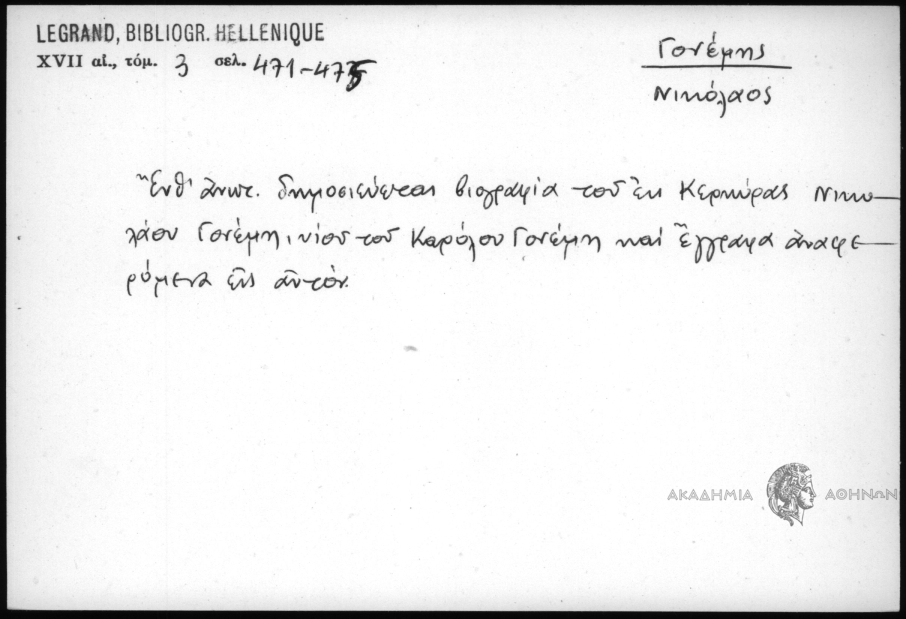 LEGRAND, BIBLIOGR. HELLENIQUE
XVII αἰ., τόμ. 3 σελ. 471-475
Γονέμης
Νικόλαος
Ἔνθ' ἀνωτ. δημοσιεύεται βιογραφία τοῦ ἐκ Κερκύρας Νικο-
λάου Γονέμη, υἱοῦ τοῦ Καρόλου Γονέμη καὶ ἔγγραφα ἀναφε-
ρόμενα εἰς αὐτόν.
ΑΚΑΔΗΜΙΑ ΑΘΗΝΩΝ